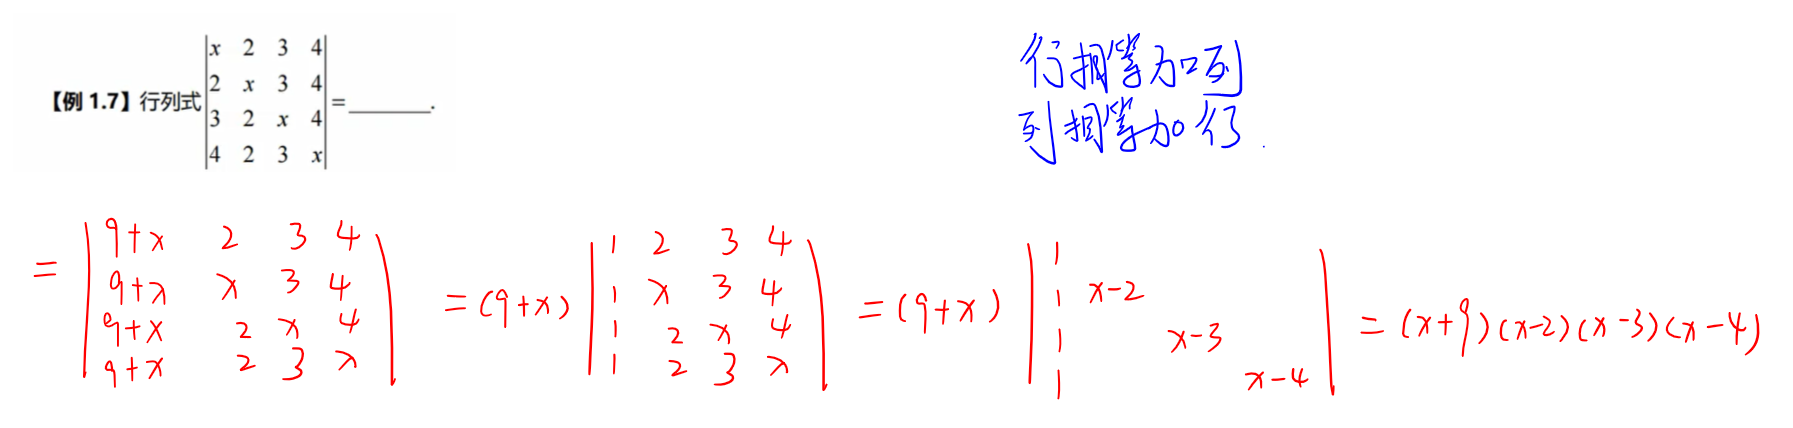 【例 1.7】行列式
|x 2 3 4|
|2 x 3 4|
|3 2 x 4|
|4 2 3 x|
=______.
行相等加列
列相等加行.
=
|9+x 2 3 4|
|9+x x 3 4|
|9+x 2 x 4|
|9+x 2 3 x|
=(9+x)
|1 2 3 4|
|1 x 3 4|
|1 2 x 4|
|1 2 3 x|
=(9+x)
|1|
|1 x-2|
|1 x-3|
|1 x-4|
=(x+9)(x-2)(x-3)(x-4)